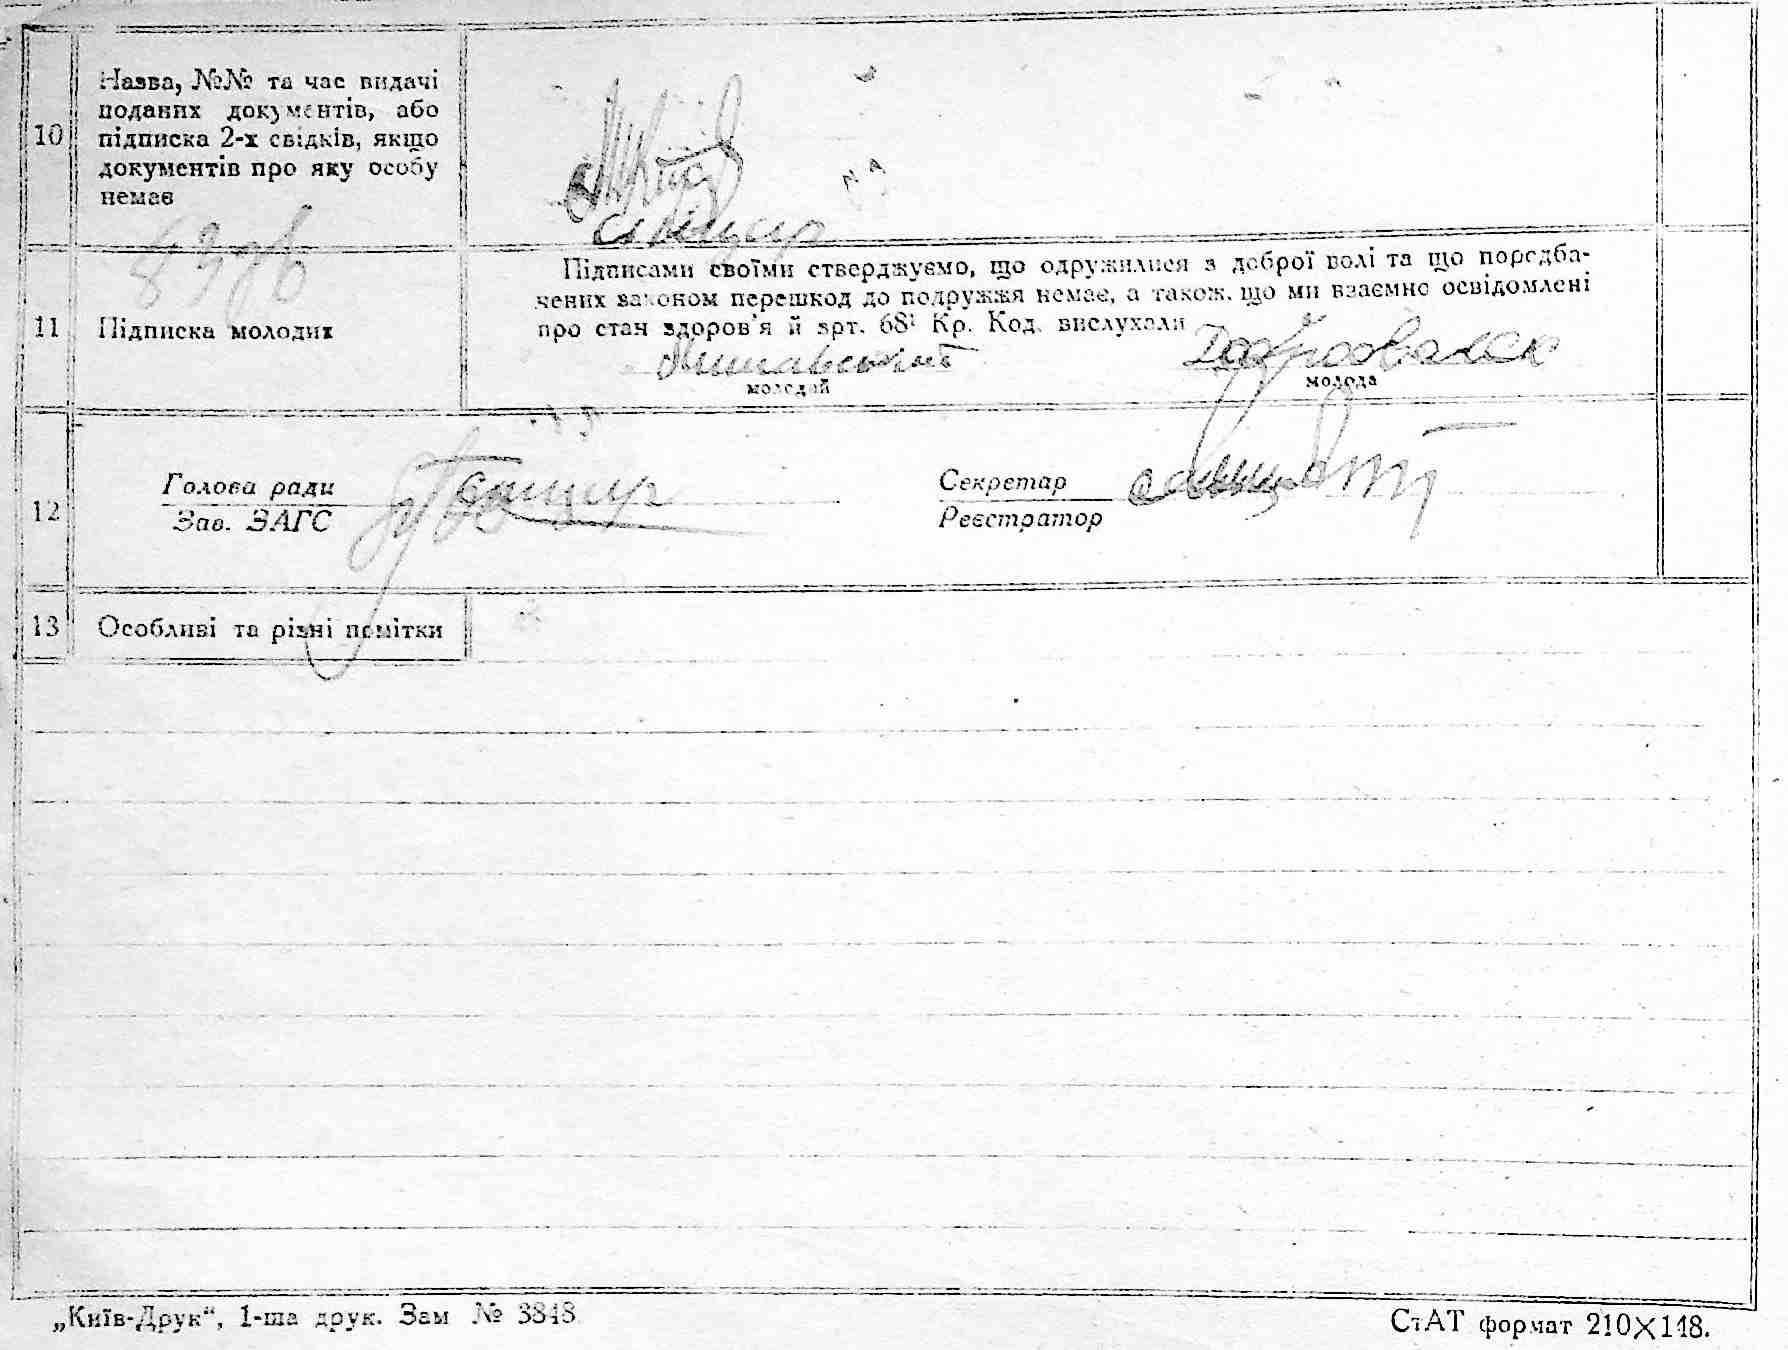 10
Назва, №№ та час видачі
поданих документів, або
підписка 2-х свідків, якщо
документів про яку особу
немає
11
Підписка молодих
Підписами своїми стверджуємо, що одружилися з доброї волі та що передба-
чених законом перешкод до подружжя немає, а також, що ми взаємно освідомлені
про стан здоров'я й арт. 68¹ Кр. Код. вислухали
молодий
молода
12
Голова ради
Зав. ЗАГС
Секретар
Реєстратор
13
Особливі та різні помітки
„Київ-Друк“, 1-ша друк. Зам № 3848
СтАТ формат 210×148.